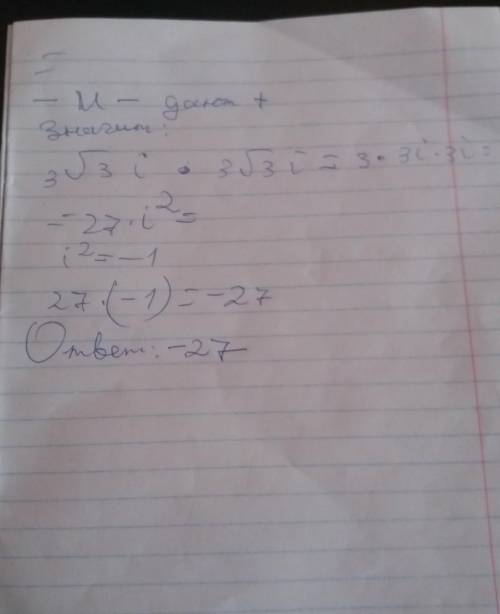 =
- и - дают +
Значит:
3√3 i · 3√3 i = 3 · 3i · 3i =
= 27 · i² =
i² = -1
27 · (-1) = -27
Ответ: -27